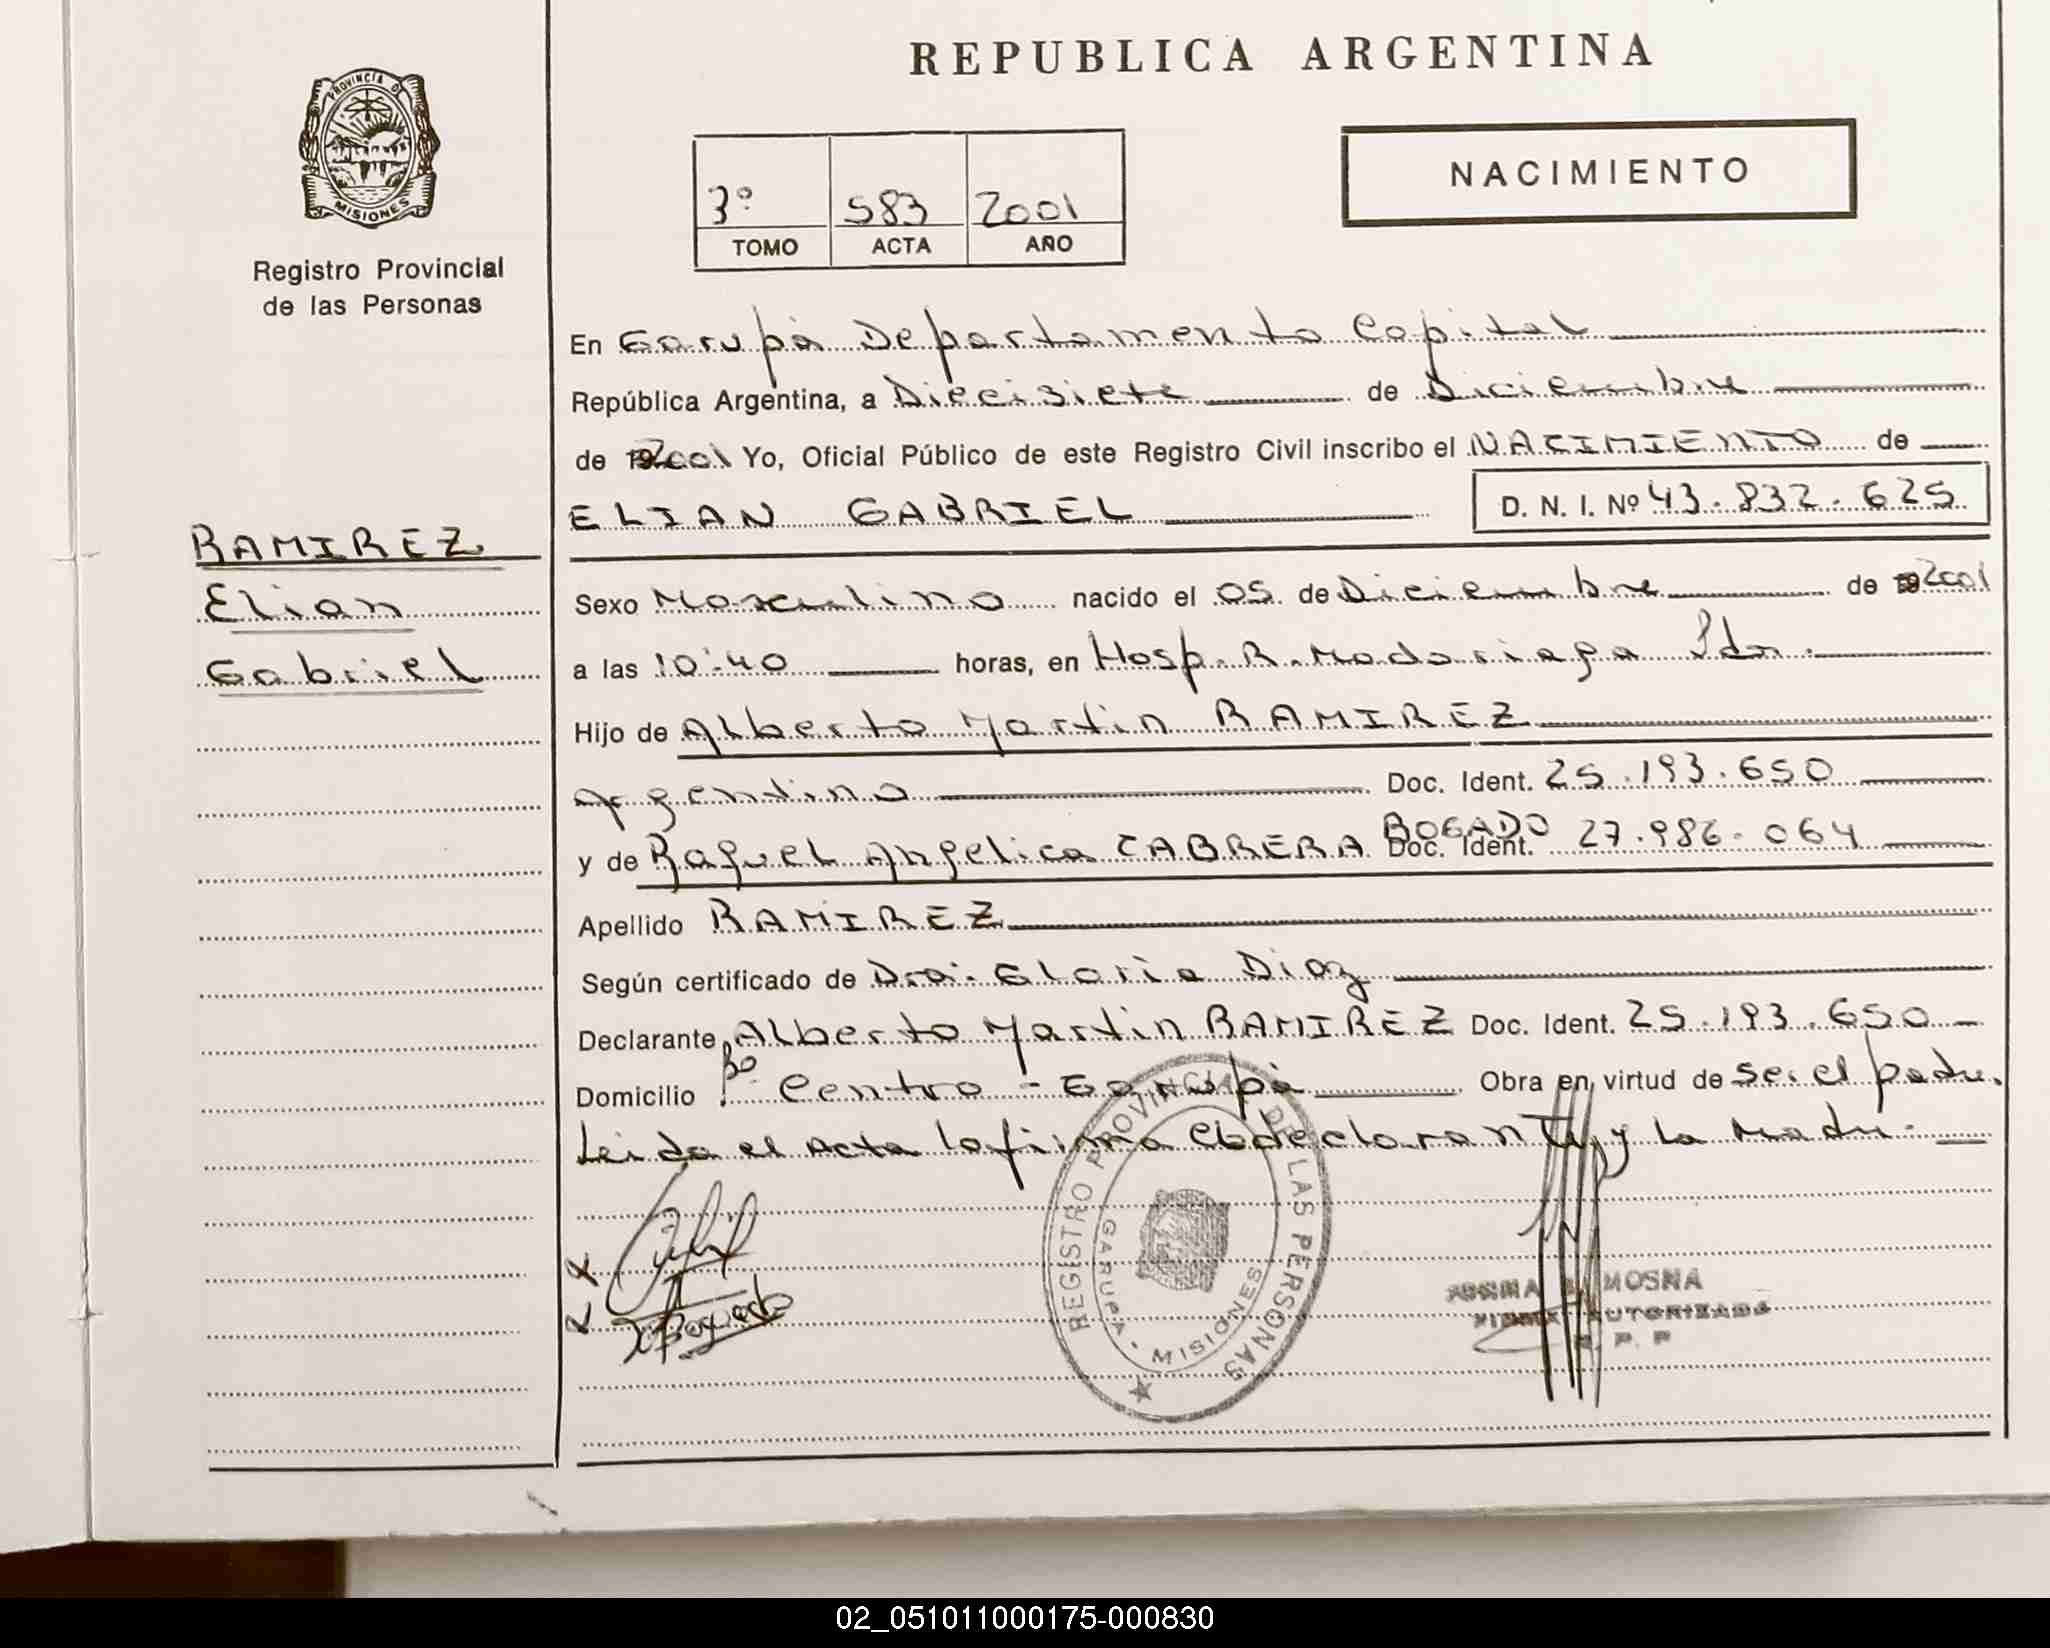 REPUBLICA ARGENTINA
PROVINCIA DE MISIONES
Registro Provincial
de las Personas
3º 583 2001
TOMO ACTA AÑO
NACIMIENTO
En Garupà Departamento Capital
República Argentina, a Diecisiete de Diciembre
de 2001 Yo, Oficial Público de este Registro Civil inscribo el NACIMIENTO de
ELIAN GABRIEL D. N. I. Nº 43.832.625
RAMIREZ
Elian
Gabriel
Sexo Masculino nacido el 05 de Diciembre de 2001
a las 10:40 horas, en Hosp. R. Madariaga Pdas.
Hijo de Alberto Martin RAMIREZ
Argentino Doc. Ident. 25.193.650
y de Raquel Angelica CABRERA BOGADO Doc. Ident. 27.986.064
Apellido RAMIREZ
Según certificado de Dra. Gloria Diaz
Declarante Alberto Martin RAMIREZ Doc. Ident. 25.193.650
Domicilio Bº Centro - Garupà Obra en virtud de ser el padre.
Leida el Acta la firma el declarante y la Madre.
REGISTRO PROVINCIAL DE LAS PERSONAS
GARUPA - MISIONES
MOSNA
AUTORIZADA
R. P. P
02_051011000175-000830